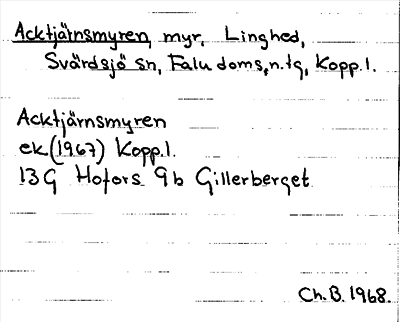 Acktjärnsmyren, myr, Linghed,
Svärdsjö sn, Falu doms.n.tg, Kopp.l.
Acktjärnsmyren
ek (1967) Kopp.l.
13G Hofors 9b Gillerberget
Ch.B. 1968.